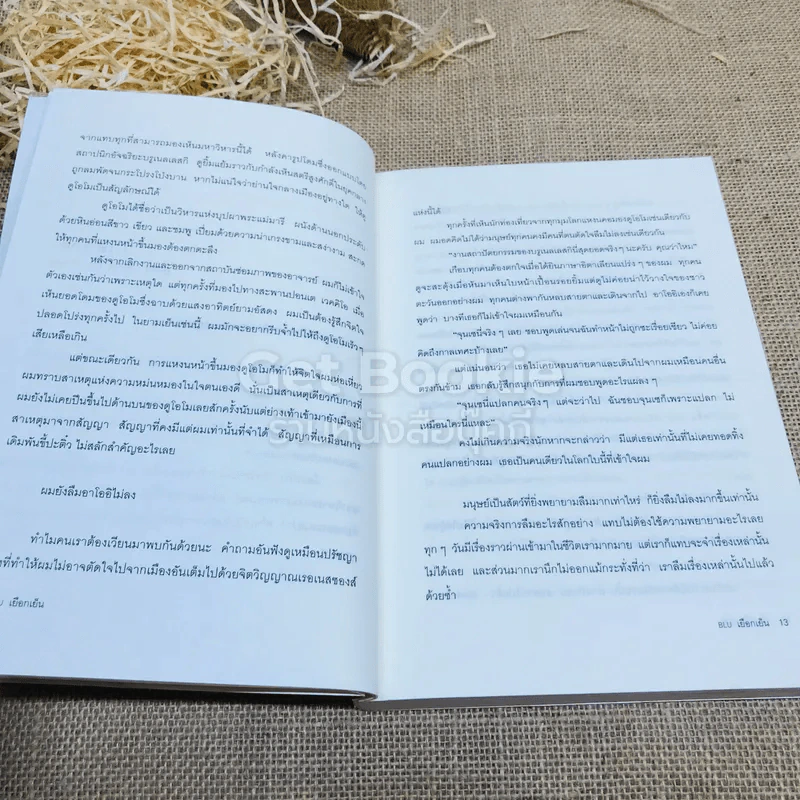 จากแทบทุกที่สามารถมองเห็นมหาวิหารนี้ได้ หลังคารูปโดมซึ่งออกแบบโดย
สถาปนิกอัจฉริยะบรูเนลเลสกี ดูยิ้มแย้มราวกับกำลังเห็นสตรีสูงศักดิ์ในยุคกลาง
ถูกลมพัดจนกระโปรงโป่งบาน หากไม่แน่ใจว่าย่านใจกลางเมืองอยู่ทางใด ให้ดู
ดูโอโมเป็นสัญลักษณ์ได้
ดูโอโมได้ชื่อว่าเป็นวิหารแห่งบุปผาพระแม่มารี ผนังด้านนอกประดับ
ด้วยหินอ่อนสีขาว เขียว และชมพู เปี่ยมด้วยความน่าเกรงขามและสง่างาม สะกด
ให้ทุกคนที่แหงนหน้าขึ้นมองต้องตกตะลึง
หลังจากเลิกงานและออกจากสถาบันซ่อมภาพของอาจารย์ ผมก็ไม่เข้าใจ
ตัวเองเช่นกันว่าเพราะเหตุใด แต่ทุกครั้งที่มองไปทางสะพานปอนเต เวคคิโอ เมื่อ
เห็นยอดโดมของดูโอโมซึ่งฉาบด้วยแสงอาทิตย์ยามอัสดง ผมเป็นต้องรู้สึกจิตใจ
ปลอดโปร่งทุกครั้งไป ในยามเย็นเช่นนี้ ผมมักจะอยากรีบจ้ำไปให้ถึงดูโอโมเร็วๆ
เสียเหลือเกิน
แต่ขณะเดียวกัน การแหงนหน้าขึ้นมองดูโอโมก็ทำให้จิตใจผมห่อเหี่ยว
ผมทราบสาเหตุแห่งความหม่นหมองในใจตนเองดี นั่นเป็นสาเหตุเดียวกับการที่
ผมยังไม่เคยปีนขึ้นไปด้านบนของดูโอโมเลยสักครั้งนับแต่ย่างเท้าเข้ามายังเมืองนี้
สาเหตุมาจากสัญญา สัญญาที่คงมีแต่ผมเท่านั้นที่จำได้ สัญญาที่เหมือนการ
เดิมพันขี้ปะติ๋ว ไม่สลักสำคัญอะไรเลย
ผมยังลืมอาโออิไม่ลง
ทำไมคนเราต้องเวียนมาพบกันด้วยนะ คำถามอันฟังดูเหมือนปรัชญา
ที่ทำให้ผมไม่อาจตัดใจไปจากเมืองอันเต็มไปด้วยจิตวิญญาณเรอเนสซองส์
เยือกเย็น
แห่งนี้ได้
ทุกครั้งที่เห็นนักท่องเที่ยวจากทุกมุมโลกแหงนคอมองดูโอโมเช่นเดียวกับ
ผม ผมอดคิดไม่ได้ว่ามนุษย์ทุกคนคงมีคนที่ตนตัดใจลืมไม่ลงเช่นเดียวกัน
“งานสถาปัตยกรรมของบรูเนลเลสกีนี่สุดยอดจริงๆ นะครับ คุณว่าไหม”
เกือบทุกคนต้องตกใจเมื่อได้ยินภาษาอิตาเลียนแปร่งๆ ของผม ทุกคน
ดูจะสะดุ้งเมื่อหันมาเห็นใบหน้าเปื้อนรอยยิ้มแต่ดูไม่ค่อยน่าไว้วางใจของชาว
ตะวันออกอย่างผม ทุกคนต่างพากันหลบสายตาและเดินจากไป อาโออิเองก็เคย
พูดว่า บางทีเธอก็ไม่เข้าใจผมเหมือนกัน
“จุนเซนี่จริงๆ เลย ชอบพูดเล่นจนฉันทำหน้าไม่ถูกซะเรื่อยเชียว ไม่ค่อย
คิดถึงกาลเทศะบ้าเลย”
แต่แน่นอนว่า เธอไม่เคยหลบสายตาและเดินไปจากผมเหมือนคนอื่น
ตรงกันข้าม เธอกลับรู้สึกสนุกกับการที่ผมชอบพูดอะไรแผลงๆ
“จุนเซนี่แปลกคนจริงๆ แต่จะว่าไป ฉันชอบจุนเซก็เพราะแปลก ไม่
เหมือนใครนี่แหละ”
คงไม่เกินความจริงนักหากจะกล่าวว่า มีแต่เธอเท่านั้นที่ไม่เคยทอดทิ้ง
คนแปลกอย่างผม เธอเป็นคนเดียวในโลกใบนี้ที่เข้าใจผม
มนุษย์เป็นสัตว์ที่ยิ่งพยายามลืมมากเท่าไหร่ ก็ยิ่งลืมไม่ลงมากขึ้นเท่านั้น
ความจริงการลืมอะไรสักอย่าง แทบไม่ต้องใช้ความพยายามอะไรเลย
ทุกๆ วันมีเรื่องราวผ่านเข้ามาในชีวิตเรามากมาย แต่เราก็แทบจะจำเรื่องเหล่านั้น
ไม่ได้เลย และส่วนมากเรานึกไม่ออกแม้กระทั่งที่ว่า เราลืมเรื่องเหล่านั้นไปแล้ว
ด้วยซ้ำ
BLU เยือกเย็น 13
Get Bookie
ร้านหนังสือบุ๊กกี้